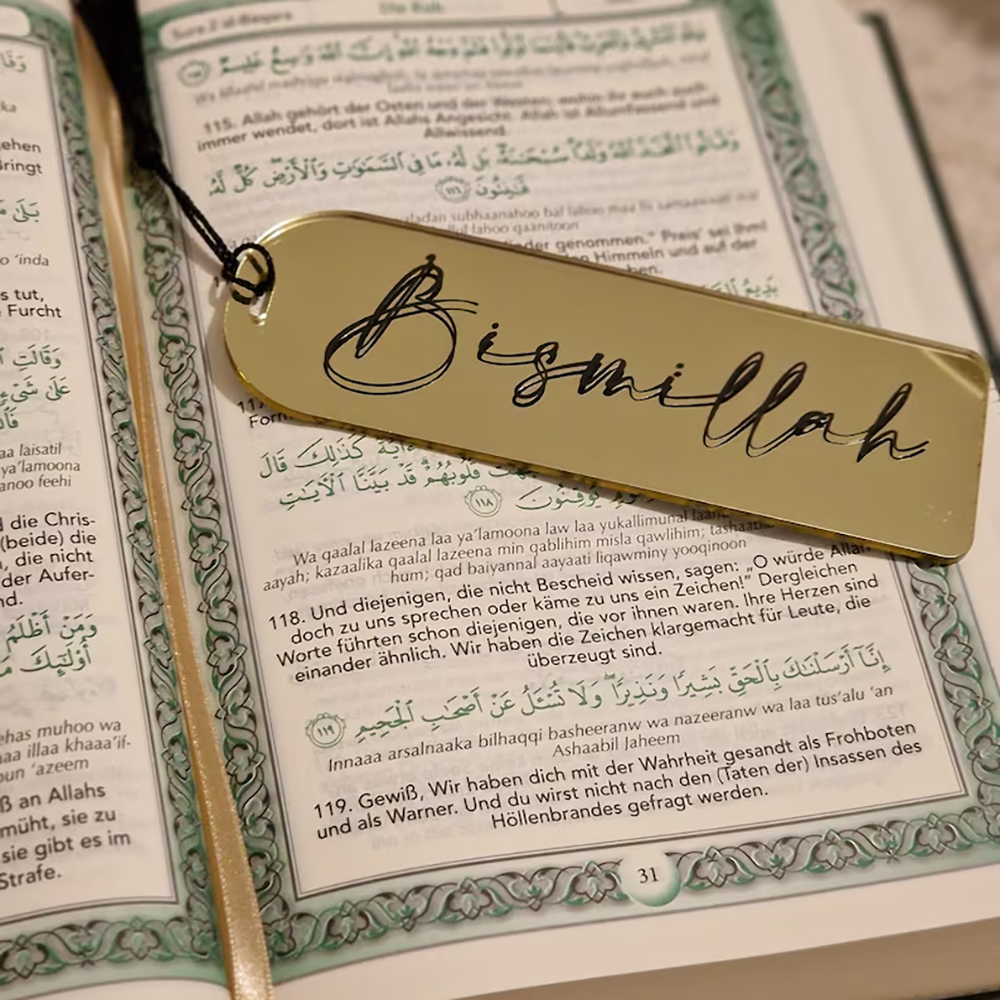 وَقَا
ka
gehen
Bringt
بَلَىٰ مَ
o 'inda
s tut,
e Furcht
وَقَالَتِ ا
عَلَىٰ شَىْءٍ
aa laisatil
ya'lamoona
anoo feehi
d die Chris-
(beide) die
, die nicht
der Aufer-
nd.
وَمَنْ أَظْلَمُ
أُو۟لَٰٓئِكَ مَ
ehas muhoo wa
naa illaa khaaa'if-
oun 'azeem
ß an Allahs
müht, sie zu
sie gibt es im
Strafe.
Sura 2 al-Baqara
Die Kuh
115. Allah gehört der Osten und der Westen; wohin ihr euch auch
immer wendet, dort ist Allahs Angesicht. Allah ist Allumfassend und
Allwissend.
وَقَالُوا۟ ٱتَّخَذَ ٱللَّهُ وَلَدًا ۗ سُبْحَٰنَهُۥ ۖ بَل لَّهُۥ مَا فِى ٱلسَّمَٰوَٰتِ وَٱلْأَرْضِ ۖ كُلٌّ لَّهُۥ
قَٰنِتُونَ ١١٦
subhaanahoo bal lahoo maa fis samaawaati wal
lahoo qaanitoon
genommen." Preis sei Ihm!
Himmeln und auf der
ben.
بَدِيعُ
Bismillah
117
Form
كَذَٰلِكَ قَالَ
قُلُوبُهُمْ ۗ قَدْ بَيَّنَّا ٱلْءَايَٰتِ
يُوقِنُونَ ١١٨
Wa qaalal lazeena laa ya'lamoona law laa yukallimunal laahu
aayah; kazaalika qaalal lazeena min qablihim misla qawlihim; tashaabahat
hum; qad baiyannal aayaati liqawminy yooqinoon
118. Und diejenigen, die nicht Bescheid wissen, sagen: „O würde Allah
doch zu uns sprechen oder käme zu uns ein Zeichen!" Dergleichen
Worte führten schon diejenigen, die vor ihnen waren. Ihre Herzen sind
einander ähnlich. Wir haben die Zeichen klargemacht für Leute, die
überzeugt sind.
إِنَّآ أَرْسَلْنَٰكَ بِٱلْحَقِّ بَشِيرًا وَنَذِيرًا ۖ وَلَا تُسْـَٔلُ عَنْ أَصْحَٰبِ ٱلْجَحِيمِ ١١٩
Innaaa arsalnaaka bilhaqqi basheeranw wa nazeeranw wa laa tus'alu 'an
Ashaabil Jaheem
119. Gewiß, Wir haben dich mit der Wahrheit gesandt als Frohboten
und als Warner. Und du wirst nicht nach den (Taten der) Insassen des
Höllenbrandes gefragt werden.
31